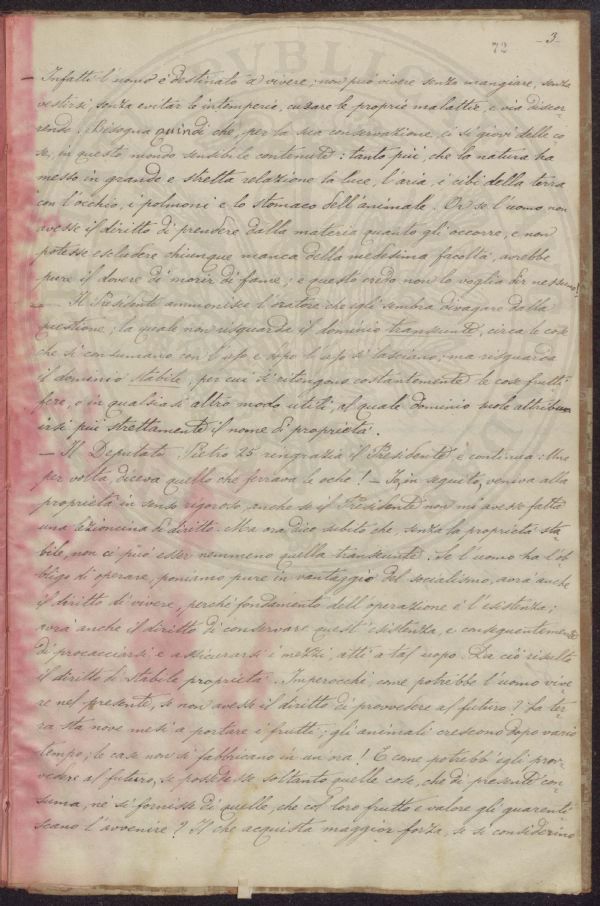 72
-3-
— Infatti l'uomo è destinato a vivere; non può vivere senza mangiare, senza
vestirsi, senza evitar le intemperie, curare le proprie malattie, e via discor-
rendo. Bisogna quindi che, per la sua conservazione, ei si giovi delle co-
se, in questo mondo sensibile contenute: tanto più, che la natura ha
messo in grande e stretta relazione la luce, l'aria, i cibi della terra
con l'occhio, i polmoni e lo stomaco dell'animale. Or se l'uomo non
avesse il diritto di prendere dalla materia quanto gli occorre, e non
potesse escludere chiunque manca della medesima facoltà, avrebbe
pure il dovere di morir di fame; e questo credo non lo voglia dir nessuno!
— Il Presidente ammonisce l'oratore che egli sembra divagare dalla
questione; la quale non risguarda il dominio transeunte, circa le cose
che si consumano con l'uso e dopo l'uso si lasciano; ma risguarda
il dominio stabile, per cui si ritengono costantemente le cose frutti-
fere, o in qualsiasi altro modo utili, al quale dominio suole attribu-
irsi più strettamente il nome di proprietà.
— Il Deputato Pietro 25 ringrazia il Presidente e continua: Una
per volta, diceva quello che ferrava le oche! — Io, in seguito, veniva alla
proprietà in senso rigoroso, anche se il Presidente non mi avesse fatta
una lezioncina di diritto. Ma ora dico subito che, senza la proprietà sta-
bile, non ci può esser nemmeno quella transeunte. Se l'uomo ha l'ob-
bligo di operare, poniamo pure in vantaggio del socialismo, avrà anche
il diritto di vivere, perchè fondamento dell'operazione è l'esistenza;
avrà anche il diritto di conservare quest'esistenza, e conseguentemente
di procacciarsi e assicurarsi i mezzi, atti a tal uopo. Da ciò risulta
il diritto di stabile proprietà. Imperocchè, come potrebbe l'uomo vive-
re nel presente, se non avesse il diritto di provvedere al futuro? La ter-
ra sta nove mesi a portare i frutti; gli animali crescono dopo vario
tempo; le case non si fabbricano in un'ora! E come potrebb'egli prov-
vedere al futuro, se possedesse soltanto quelle cose, che di presente con-
suma, nè si fornisse di quelle, che col loro frutto e valore gli guarenti-
scano l'avvenire? Il che acquista maggior forza, se si considerino